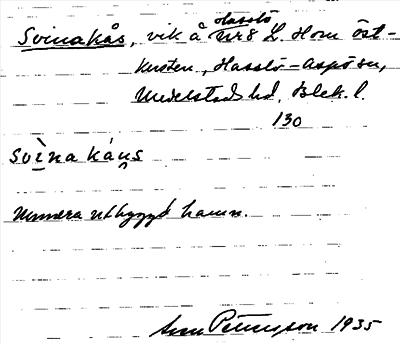 Hasslö
Svinakås, vik å nr 8 L. Horn öst-
kusten, Hasslö-Aspö sn,
Medelstads hd, Blek. l.
130
svìnakáu̯s
numera utbyggd hamn.
Sven Petersson 1935